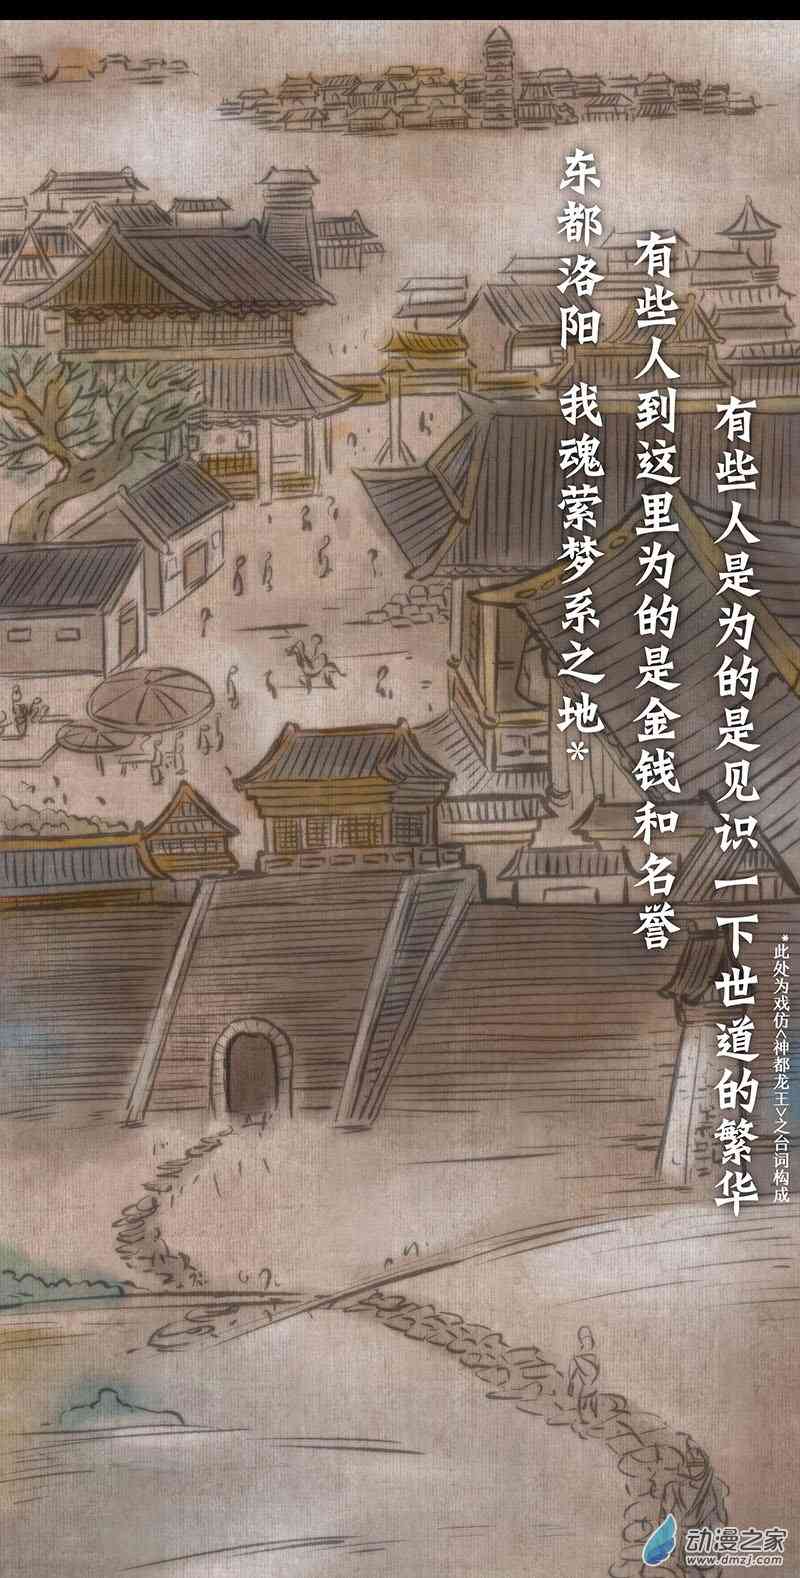 有些人是为的是见识一下世道的繁华
有些人到这里为的是金钱和名誉
东都洛阳 我魂萦梦系之地*
*此处为戏仿<神都龙王>之台词构成
动漫之家
www.dmzj.com